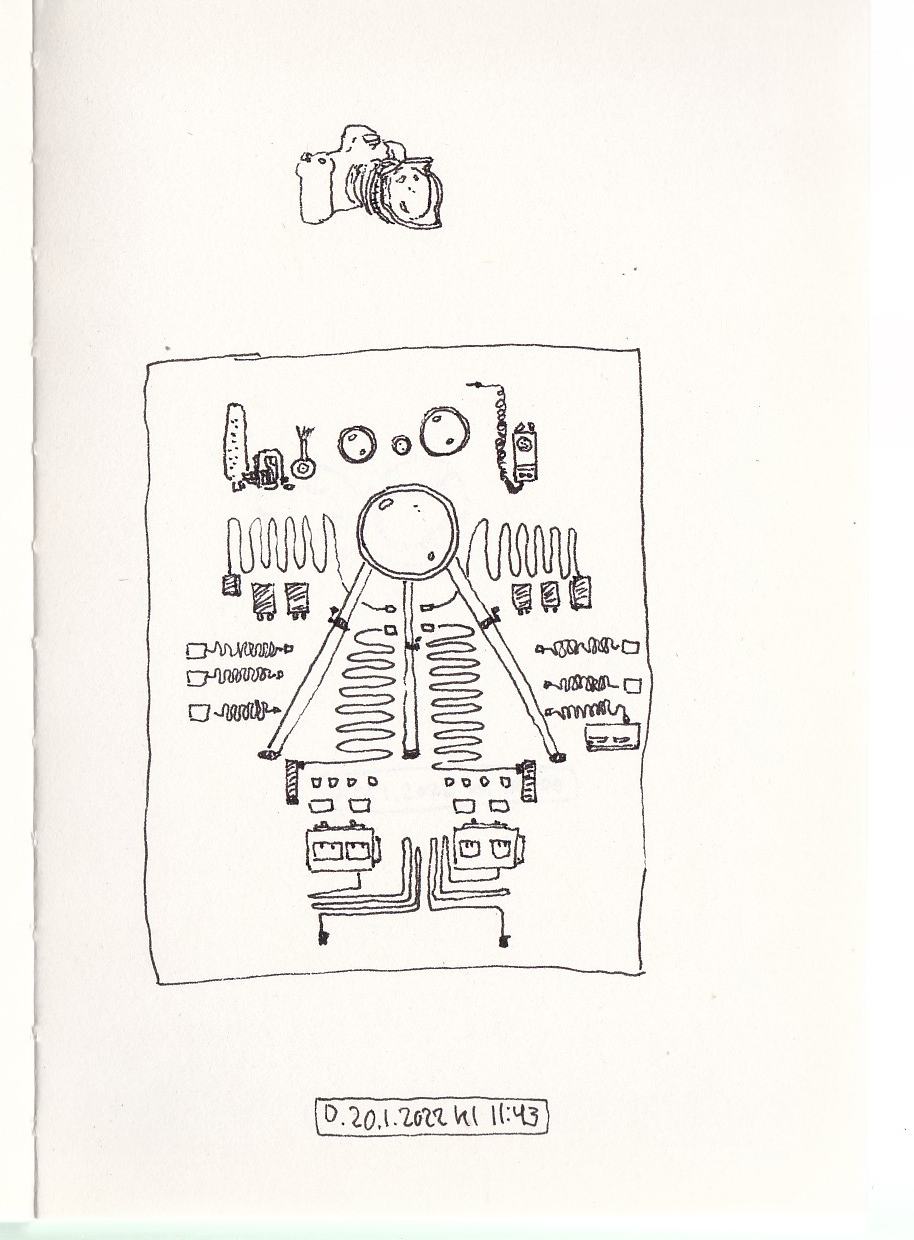 D.20.1.2022 kl 11:43